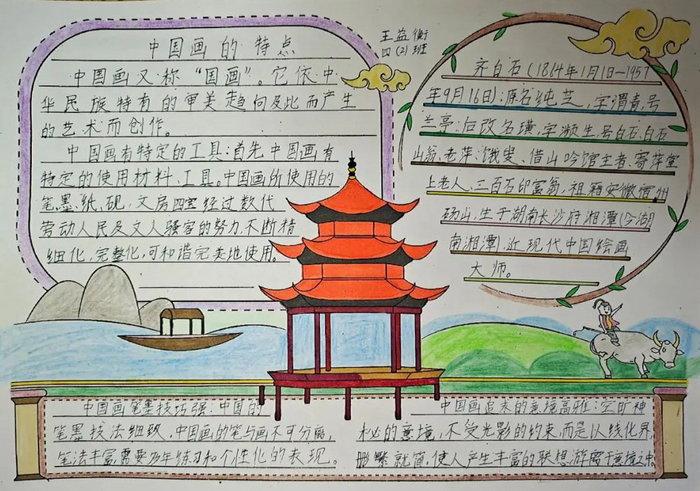 中国画的特点
中国画又称"国画"。它依中
华民族特有的审美趋向及比而产生
的艺术而创作。
中国画有特定的工具:首先中国画有
特定的使用材料、工具。中国画所使用的
笔墨、纸、砚,文房四宝经过数代
劳动人民及文人骚客的努力,不断精
细化、完整化,可和谐完美地使用。
王益衡
四(2)班
齐白石(1864年1月1日—1957
年9月16日):原名纯芝,字渭青,号
兰亭;后改名璜,字濒生,号白石、白石
山翁、老萍、饿叟、借山吟馆主者、寄萍堂
上老人、三百石印富翁,祖籍安徽宿州
砀山,生于湖南长沙府湘潭(今湖
南湘潭),近现代中国绘画
大师。
中国画笔墨技巧强:中国的
笔墨技法细致,中国画的笔与画不可分离,
笔法丰富,需要多年练习和个性化的表现。
中国画追求的意境高雅:空旷神
秘的意境,不受光影的约束,而是以线化界
形繁就简,使人产生丰富的联想,游离于意境之中